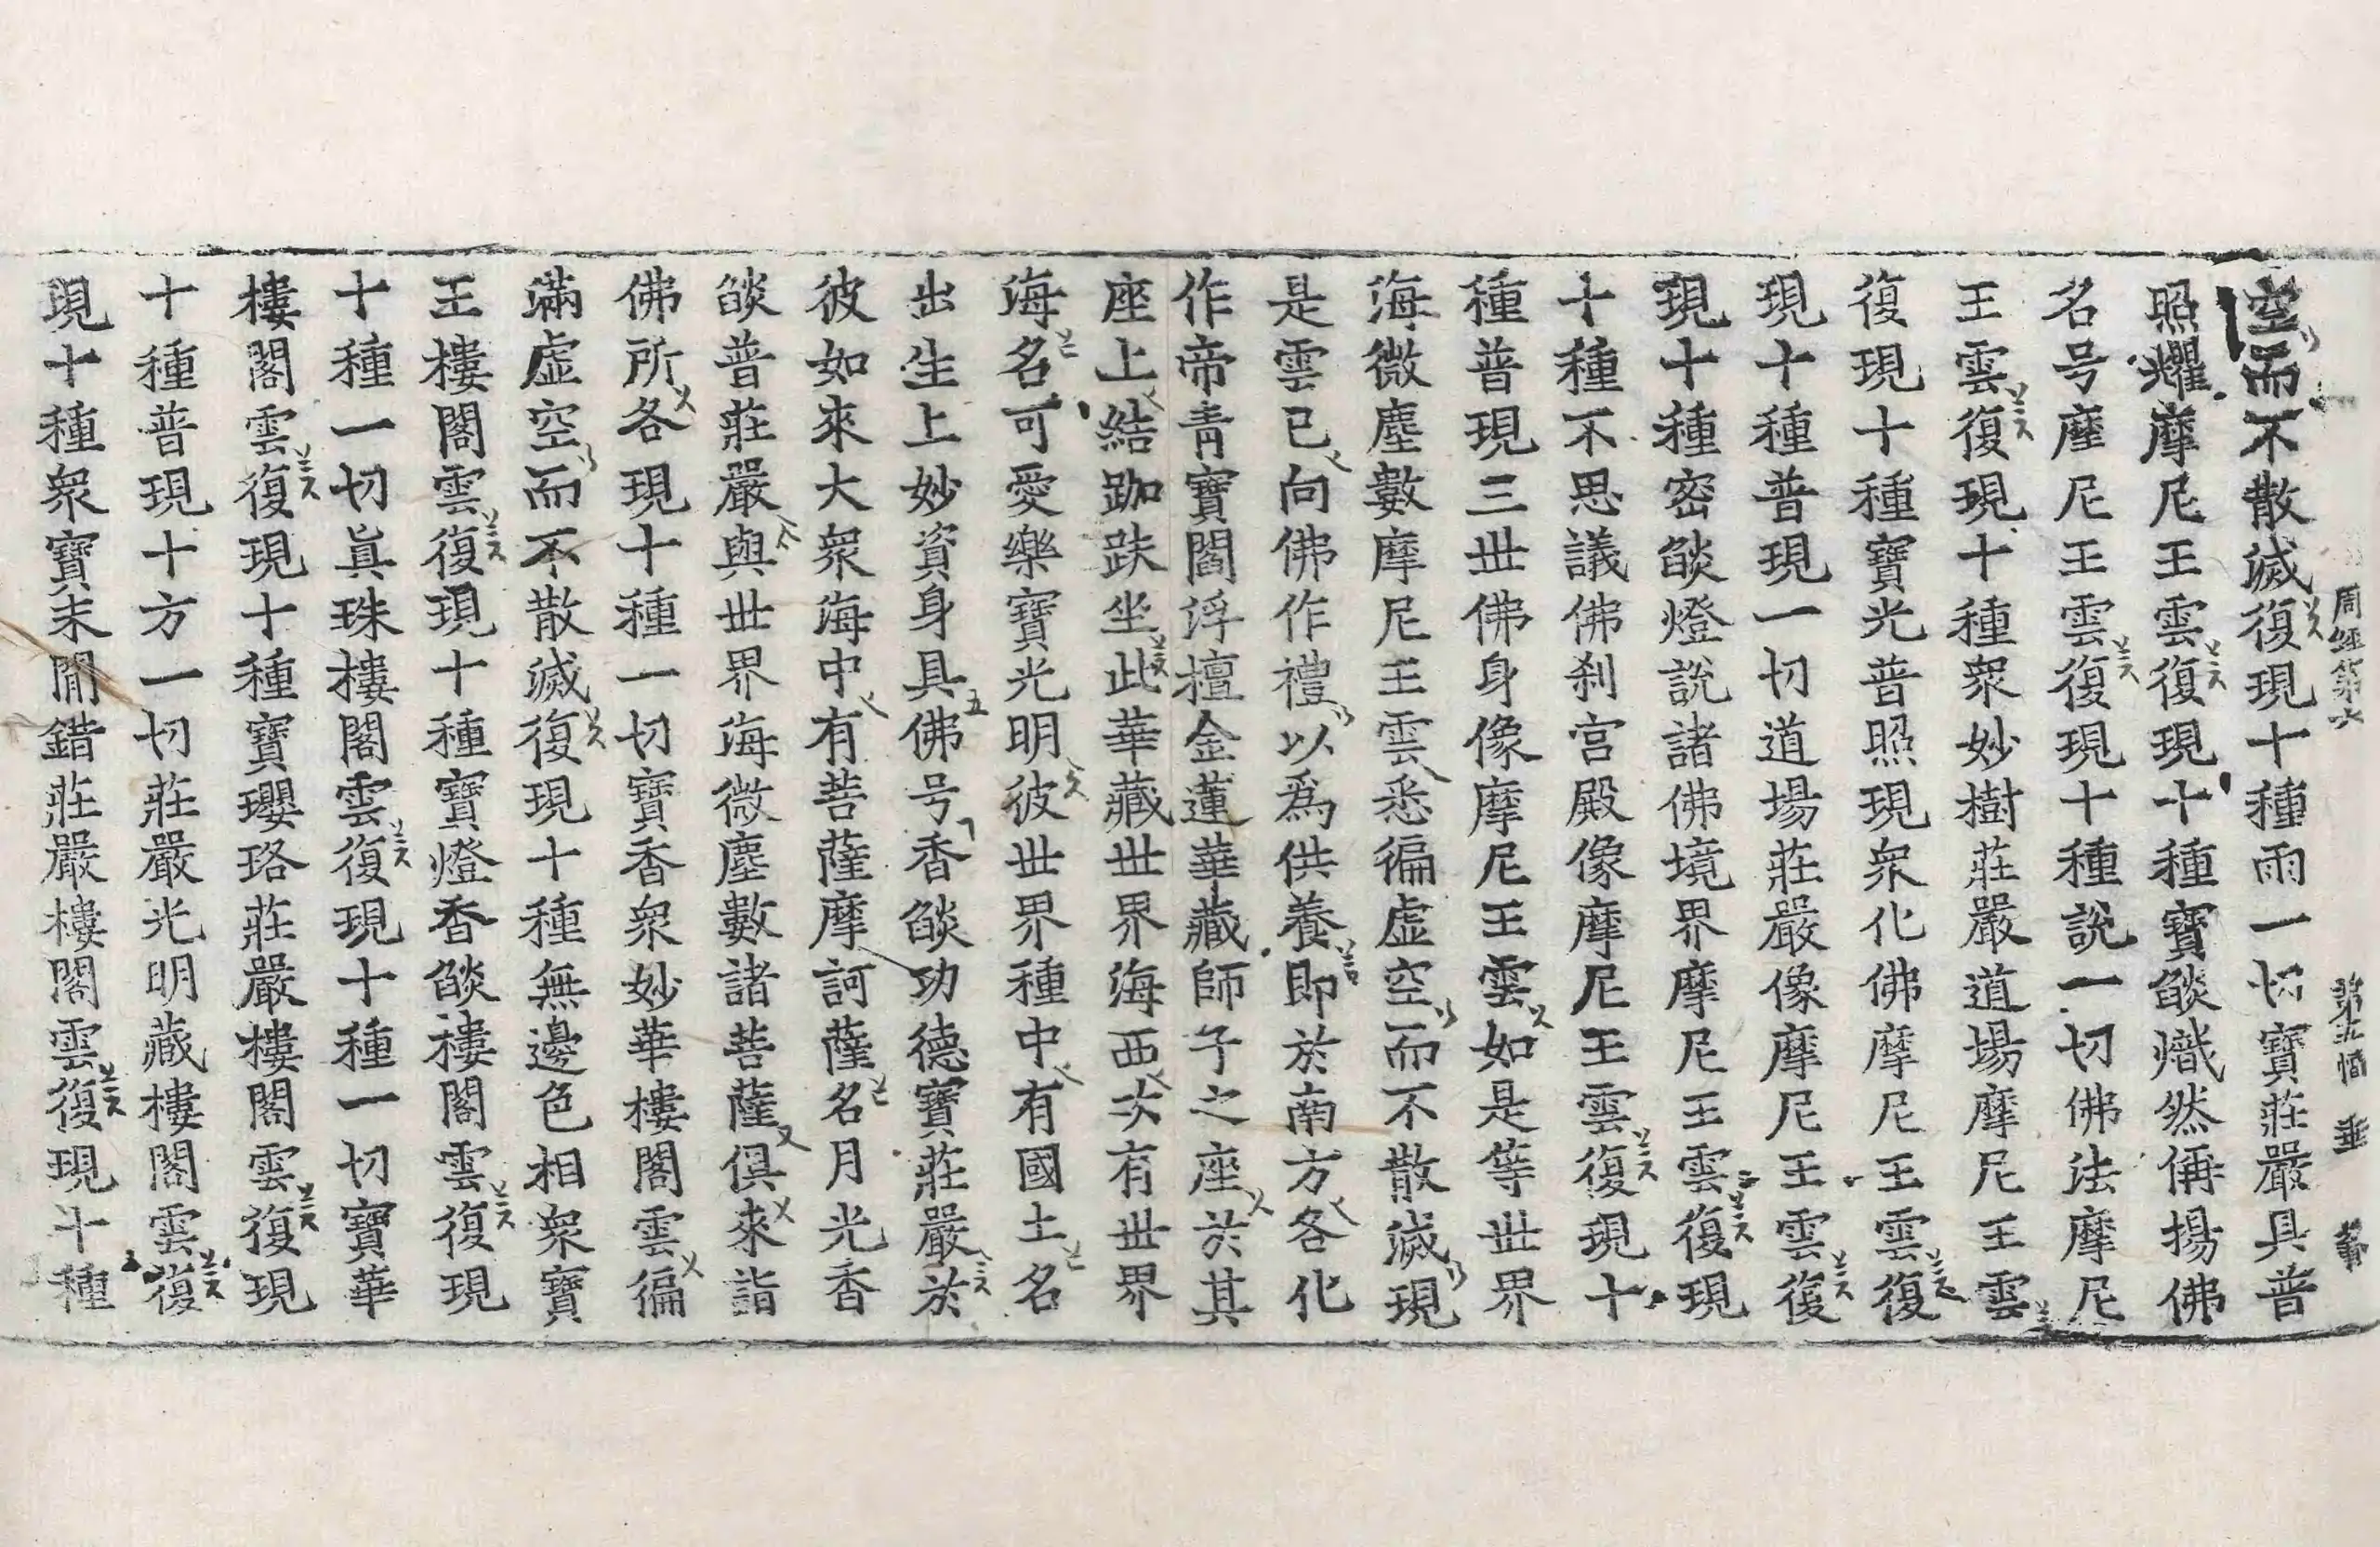 周経第六　第五幅　垂
空而不散滅復現十種雨一切寶莊嚴具普
照耀摩尼王雲復現十種寶𦦨熾然偁揚佛
名号摩尼王雲復現十種說一切佛法摩尼
王雲復現十種衆妙樹莊嚴道場摩尼王雲
復現十種寶光普照現衆化佛摩尼王雲復
現十種普現一切道場莊嚴像摩尼王雲復
現十種密𦦨燈說諸佛境界摩尼王雲復現
十種不思議佛刹宮殿像摩尼王雲復現十
種普現三世佛身像摩尼王雲如是等世界
海微塵數摩尼王雲悉徧虛空而不散滅現
是雲已向佛作禮以為供養即於南方各化
作帝青寶閻浮檀金蓮華藏師子之座於其
座上結跏趺坐此華藏世界海西次有世界
海名可愛樂寶光明彼世界種中有國土名
出生上妙資身具佛号香𦦨功德寶莊嚴於
彼如來大衆海中有菩薩摩訶薩名月光香
𦦨普莊嚴與世界海微塵數諸菩薩俱來詣
佛所各現十種一切寶香衆妙華樓閣雲徧
滿虛空而不散滅復現十種無邊色相衆寶
王樓閣雲復現十種寶燈香𦦨樓閣雲復現
十種一切眞珠樓閣雲復現十種一切寶華
樓閣雲復現十種寶瓔珞莊嚴樓閣雲復現
十種普現十方一切莊嚴光明藏樓閣雲復
現十種衆寶末閒錯莊嚴樓閣雲復現十種